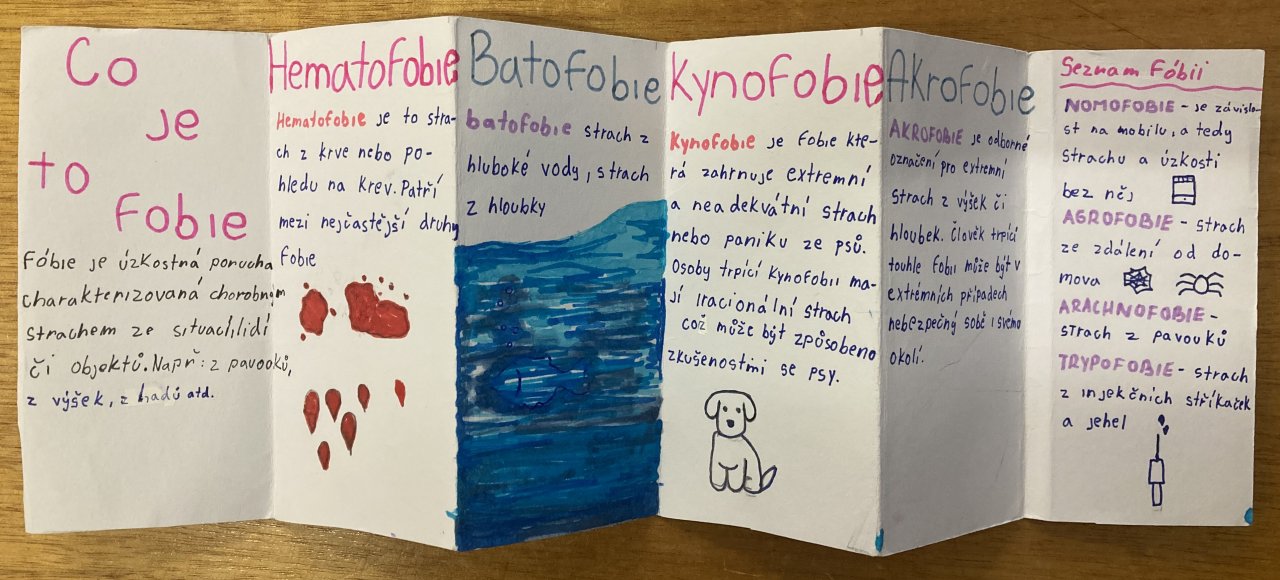 Co
je
to
Fobie
Fóbie je úzkostná porucha
charakterizovaná chorobným
strachem ze situací,lidí
či objektů.Např.:z pavooků,
z výšek, z hadů atd.
Hematofobie
Hematofobie je to stra-
ch z krve nebo po-
hledu na krev. Patří
mezi nejčastější druhy
fobie
Batofobie
batofobie strach z
hluboké vody, strach
z hloubky
Kynofobie
Kynofobie je fobie kte-
rá zahrnuje extremní
a neadekvátní strach
nebo paniku ze psů.
Osoby trpící kynofobii ma-
jí iracionální strach
což může být způsobeno
zkušenostmi se psy.
Akrofobie
AKROFOBIE je odborné
označení pro extremní
strach z výšek či
hloubek. Člověk trpící
touhle fobii může být v
extrémních případech
nebezpečný sobě i svému
okolí.
Seznam Fóbii
NOMOFOBIE - je závislo-
st na mobilu, a tedy
strachu a úzkosti
bez něj
AGROFOBIE - strach
ze zdálení od do-
mova
ARACHNOFOBIE -
strach z pavouků
TRYPOFOBIE - strach
z injekčních stříkaček
a jehel